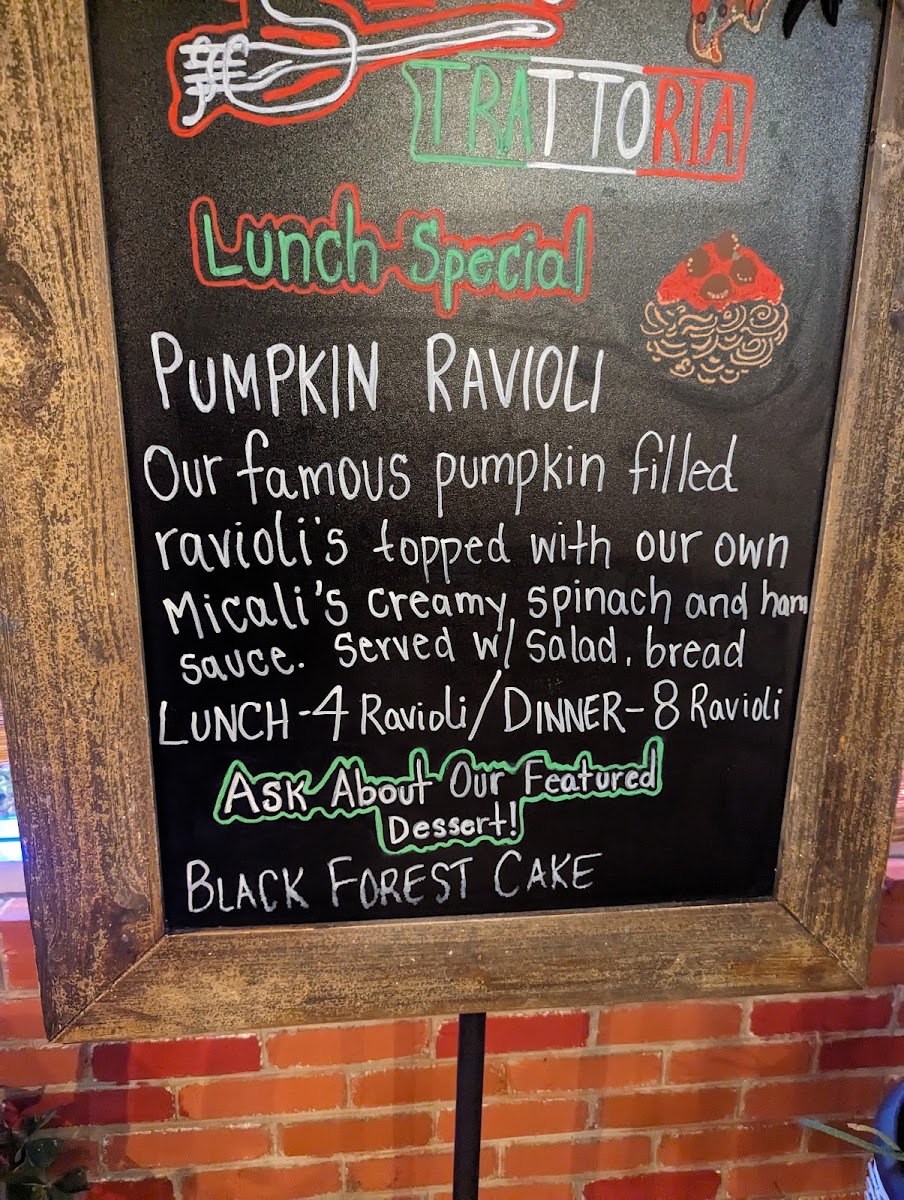 TRATTORIA
Lunch Special
PUMPKIN RAVIOLI
Our famous pumpkin filled
ravioli's topped with our own
Micali's creamy spinach and ham
sauce. Served w/ salad, bread
LUNCH - 4 Ravioli / DINNER - 8 Ravioli
ASK About Our Featured
Dessert!
BLACK FOREST CAKE